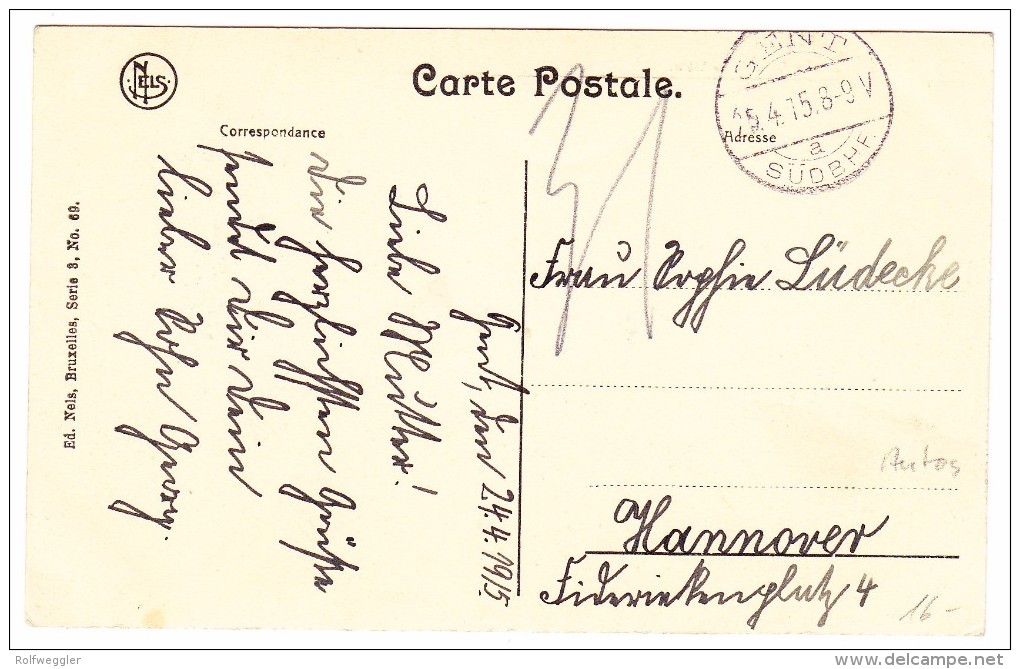 NELS
Carte Postale.
Correspondance
Adresse
GENT
25.4.15.8-9V
a
SÜDBHF.
Gent, den 24.4.1915.
Liebe Mutter!
Die herzlichsten Grüße
sendet Dir Dein
lieber Sohn
Frau Sophie Lüdecke
Autos
Hannover
Friederikenplatz 4
16-
Ed. Nels, Bruxelles, Serie 3, No. 69.
Rolfweggler
delcampe.net